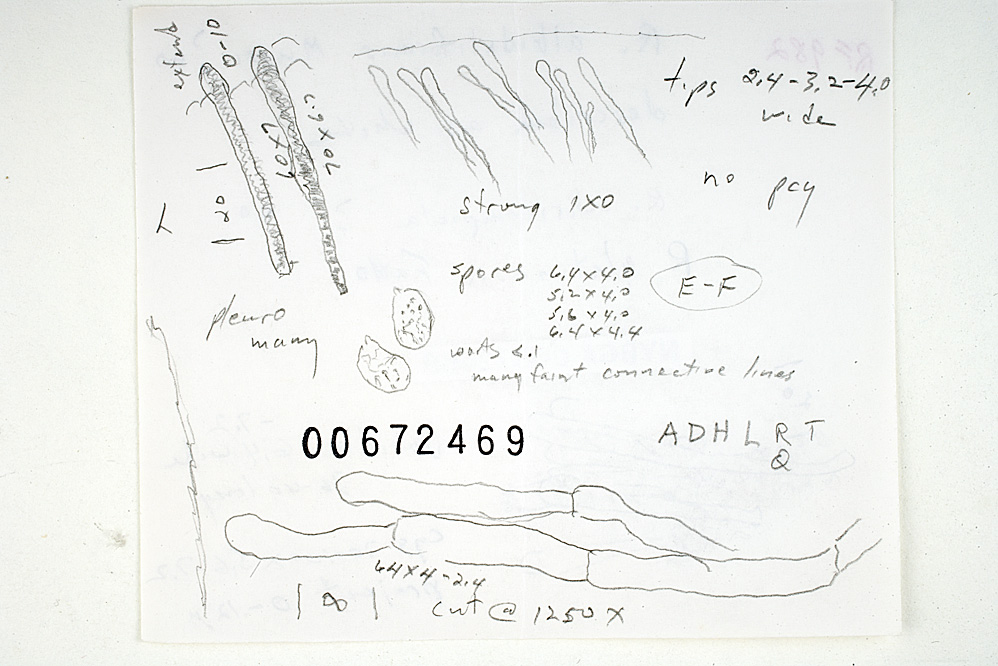 extend 0-10
tips 2,4-3,2-4,0
wide
60x7
70x6.7
no pcy
120
T
strong 1X0
spores 6,4x4.0
5,2x4,0
5,6x4,0
6,4x4.4
E-F
pleuro
many
warts <.1
many faint connective lines
00672469
A D H L R T
Q
64x4-2,4
| ∞ | cut @ 1250 X